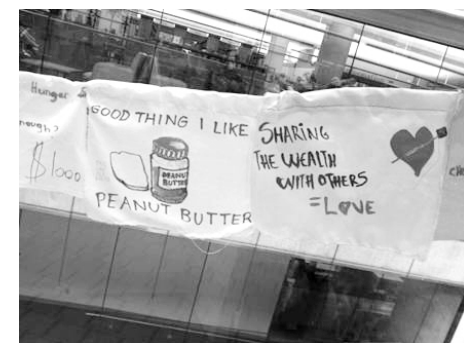 Hunger
$1000
GOOD THING I LIKE
PEANUT
BUTTER
PEANUT BUTTER
SHARING
THE WEALTH
WITH OTHERS
=LOVE